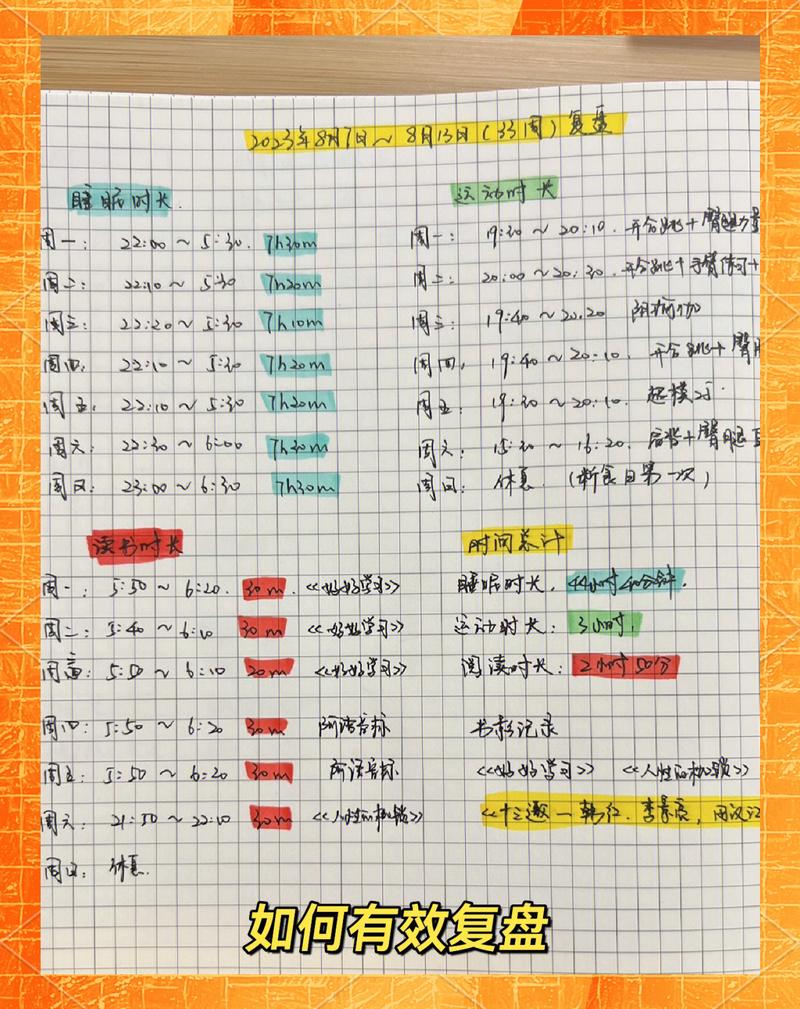 2023年8月7日~8月13日(33周)复盘
睡眠时长
周一: 22:00~5:30. 7h30m
周二: 22:10~5:30 7h20m
周三: 22:20~5:30 7h10m
周四: 22:10~5:30 7h20m
周五: 22:10~5:30 7h20m
周六: 22:30~6:00 7h30m
周日: 23:00~6:30 7h30m
运动时长
周一: 19:30~20:10. 开合跳+臀腿力量
周二: 20:00~20:30. 开合跳+手臂练习+
周三: 19:40~20:20
周四: 19:40~20:10. 开合跳+臀
周五: 19:30~20:10. 超模25
周六: 15:30~16:20. 后背+臀腿
周日: 休息. (断食日第一次)
读书时长
周一: 5:50~6:20. 30m 《好好学习》
周二: 5:40~6:10 30m 《好好学习》
周三: 5:50~6:10 20m 《好好学习》
周四: 5:50~6:20 30m 音标
周五: 5:50~6:20 30m 音标
周六: 21:50~22:10 30m 《人性的枷锁》
周日: 休息.
时间总计
睡眠时长. 44小时40分钟.
运动时长: 3小时.
阅读时长: 2小时50分
书影记录
《好好学习》 《人性的枷锁》
《十三邀—韩红. 李景亮,
如何有效复盘